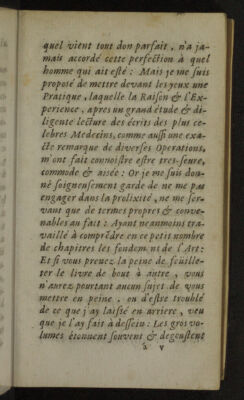 quel vient tout don parfait, n'a ja-
mais accordé cette perfection à quel
homme qui ait esté : Mais je me suis
proposé de mettre devant les yeux une
Pratique, laquelle la Raison & l'Ex-
perience, apres un grand étude & di-
ligente lecture des écrits des plus ce-
lebres Medecins, comme aussi une exa-
cte remarque de diverses Operations,
m'ont fait connoistre estre tres-seure,
commode & aisée : Or je me suis don-
né soigneusement garde de ne me pas
engager dans la prolixité, ne me ser-
vant que de termes propres & conve-
nables au fait : Ayant neantmoins tra-
vaillé à comprēdre en ce petit nombre
de chapitres les fondemens de l'Art:
Et si vous prenez la peine de feüille-
ter le livre de bout à autre, vous
n'aurez pourtant aucun sujet de vous
mettre en peine, ou d'estre troublé
de ce que j'ay laissé en arriere, veu
que je l'ay fait à dessein : Les gros vo-
lumes étonnent souvent & degoustent
ã v